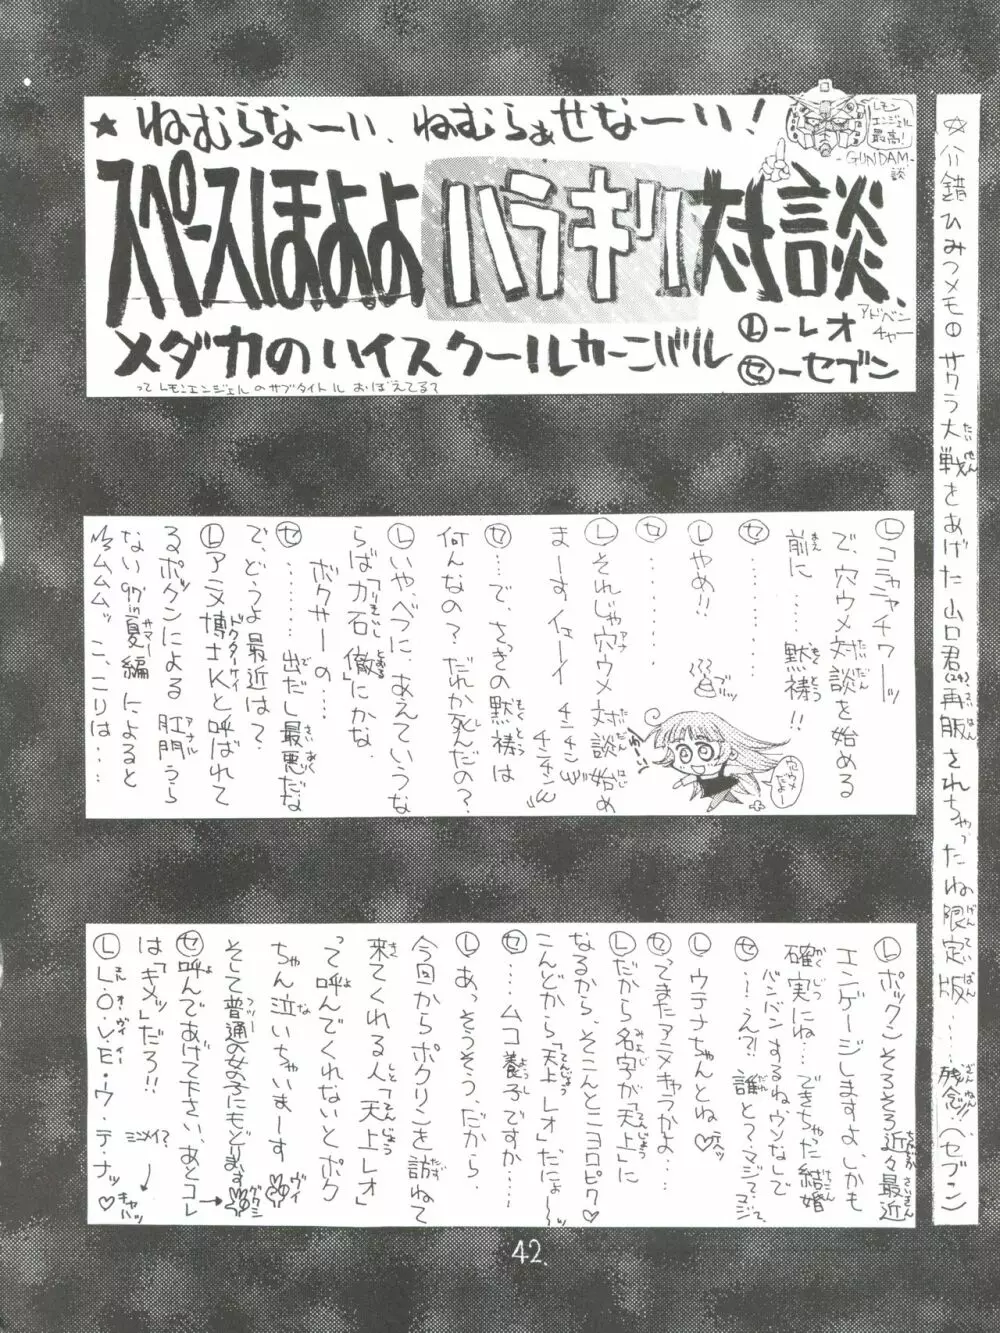 ★ねむらなーい、ねむらぁせなーい!
スペースほよよハラキリ対談、
アドベンチャー
メダカのハイスクールカーニバル
Ⓛ-レオ
㋝-セブン
ってレモンエンジェルのサブタイトルおぼえてる?
レモン
エンジェル
最高!
-GUNDAM-
談
サクラ大戦をあげた山口君(24)再販されちゃったね限定版……残念!!(セブン)
Ⓛコミャミャチワーッ
で、穴ウメ対談を始める
前に……黙祷!!
㋝…………
Ⓛやめ!!
ブリッ
㋝…………
Ⓛそれじゃ穴ウメ対談始め
まーすイェーイチンチン
チンチン
穴ウメだよー
㋝…で、さっきの黙祷は
何んなの?だれか死んだの?
Ⓛいや、べつに、あえていうな
らば「力石徹」にかな
ボクサーの…
㋝……出だし最悪だな
で、どうよ最近は?
Ⓛアニメ博士Kと呼ばれて
るポックンによる肛門うら
ない97in夏編によると
ムムムムッこ、こりは…
Ⓛポックンそろそろ近々最近
エンゲージしますよ、しかも
確実にね…できちゃった結婚
バンバンするねウソなしで
㋝…え?!誰と?マジで?マジで?
Ⓛウテナちゃんとね♡
㋝てまたアニメキャラかよ…
Ⓛだから名字が「天上」に
なるから、そこんとこヨロピク♡
こんどから「天上レオ」だにょ〜
㋝…ムコ養子ですか…
Ⓛあっそうそう、だから
今回からポクリンを訪ねて
来てくれる人「天上レオ」
って呼んでくれないとポク
ちゃん泣いちゃいまーす
ヴイ
そして普通の女の子にもどります
㋝呼んであげて下さい、あとコレ
は「キメッ」だろ!!
ミンメイ?
ⓁL・O・V・E・ウ・テ・ナッ♡
キャハッ
42.